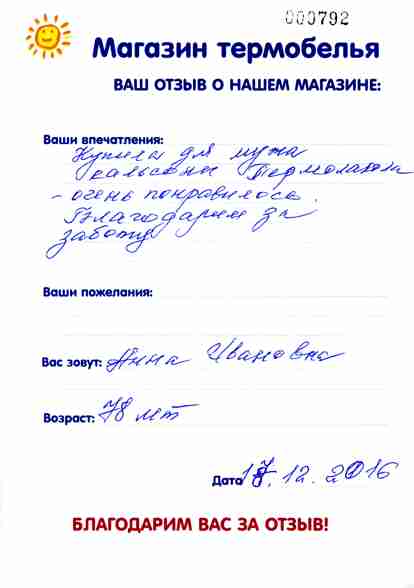 000792
Магазин термобелья
ВАШ ОТЗЫВ О НАШЕМ МАГАЗИНЕ:
Ваши впечатления:
Купила для мужа
кальсоны Термолактил
- очень понравилось.
Благодарим за
заботу
Ваши пожелания:
Вас зовут: Анна Ивановна
Возраст: 78 лет
Дата 17.12.2016
БЛАГОДАРИМ ВАС ЗА ОТЗЫВ!